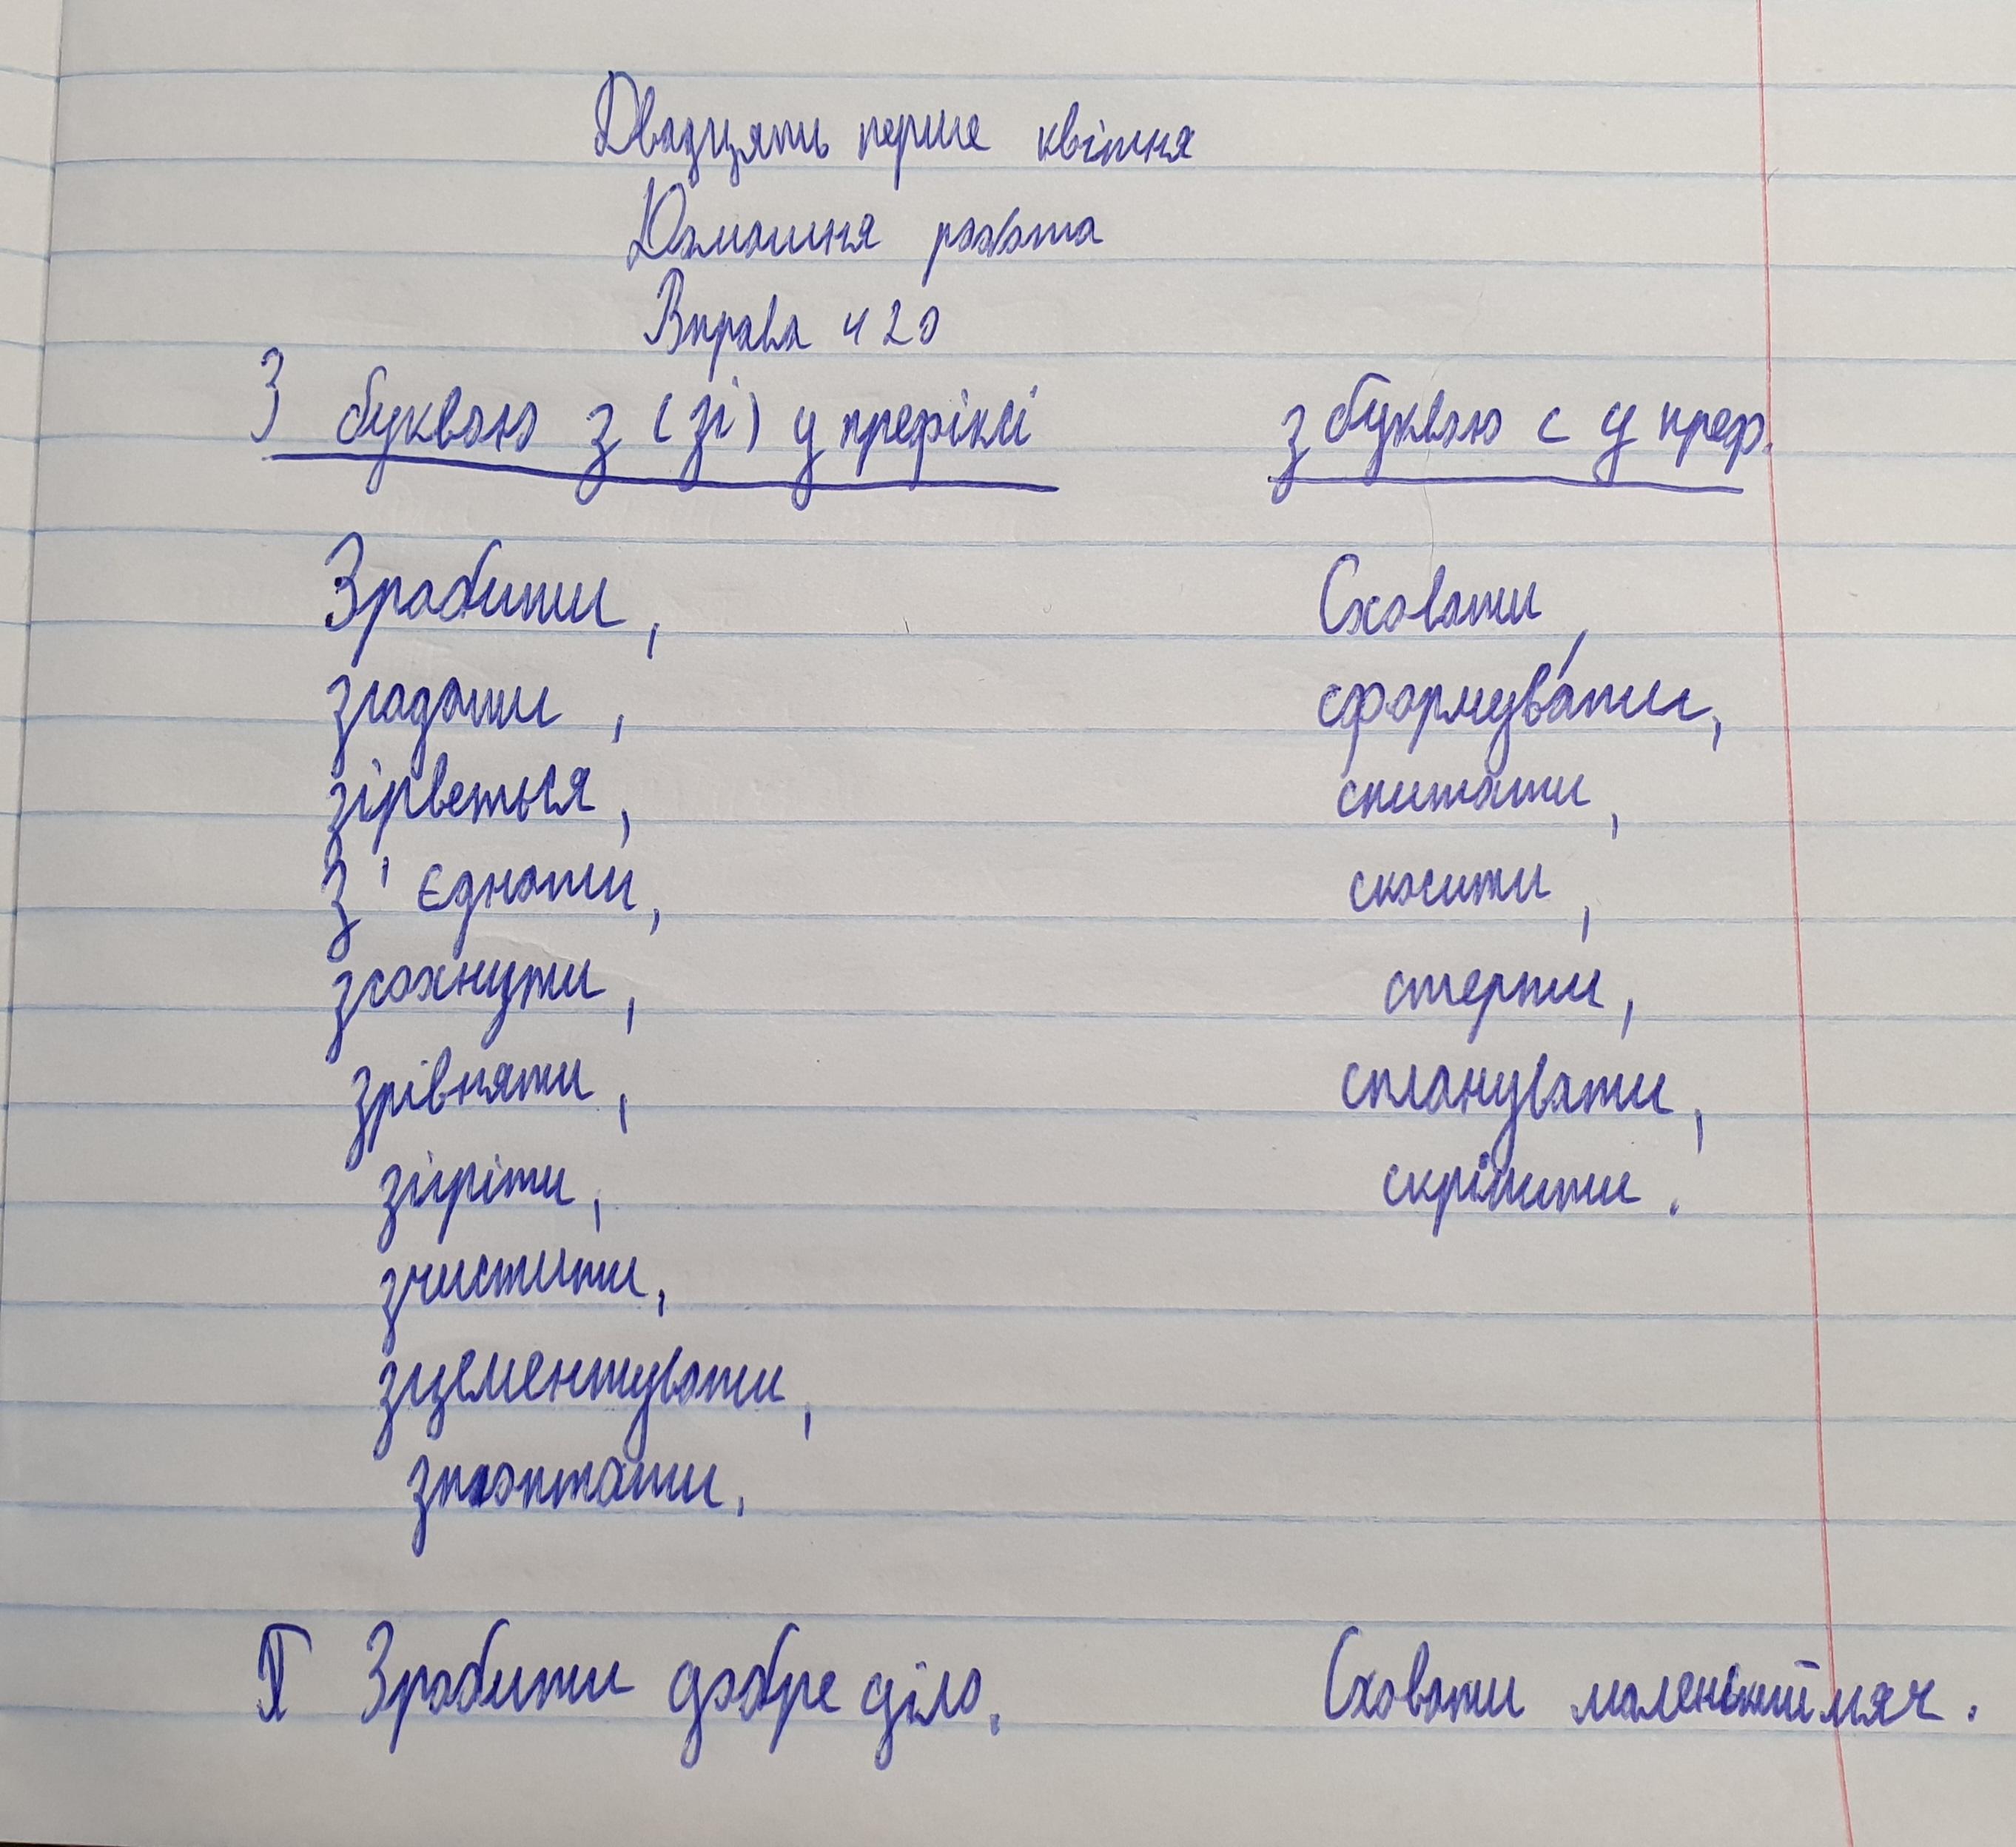 Двадцять перше квітня
Домашня робота
Вправа 420
З буквою з (зі) у префіксі
з буквою с у преф.
Зробити,
згадати,
зірветься,
з'єднати,
зсохнути,
зрівняти,
зігріти,
зчистити,
зцементувати,
зтоптати.
Сховати,
сформувати,
спитати,
скосити,
стерти,
спланувати,
скріпити.
II Зробити добре діло.
Сховати маленький мяч.